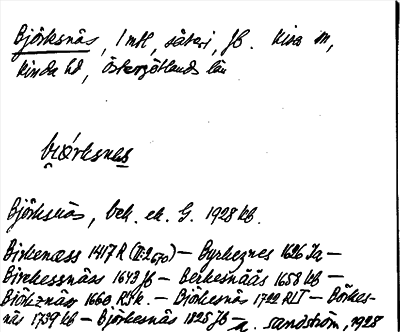 Björksnäs, 1 mtl, säteri, Jb. Kisa sn,
Kinda hd, Östergötlands län
bi̯ǿrksnes
Björksnäs, bek. ek. G. 1928 kb.
Birkenæss 1417 R (II:2 670) – Byrkeznes 1626 Ja –
Birckessnääs 1643 Jb – Berkesnääs 1658 kb –
Biökznäss 1660 RJk. – Biöksnäs 1722 RLT – Börkes-
näs 1739 kb – Björkesnäs 1825 Jb – A. Sandström, 1928